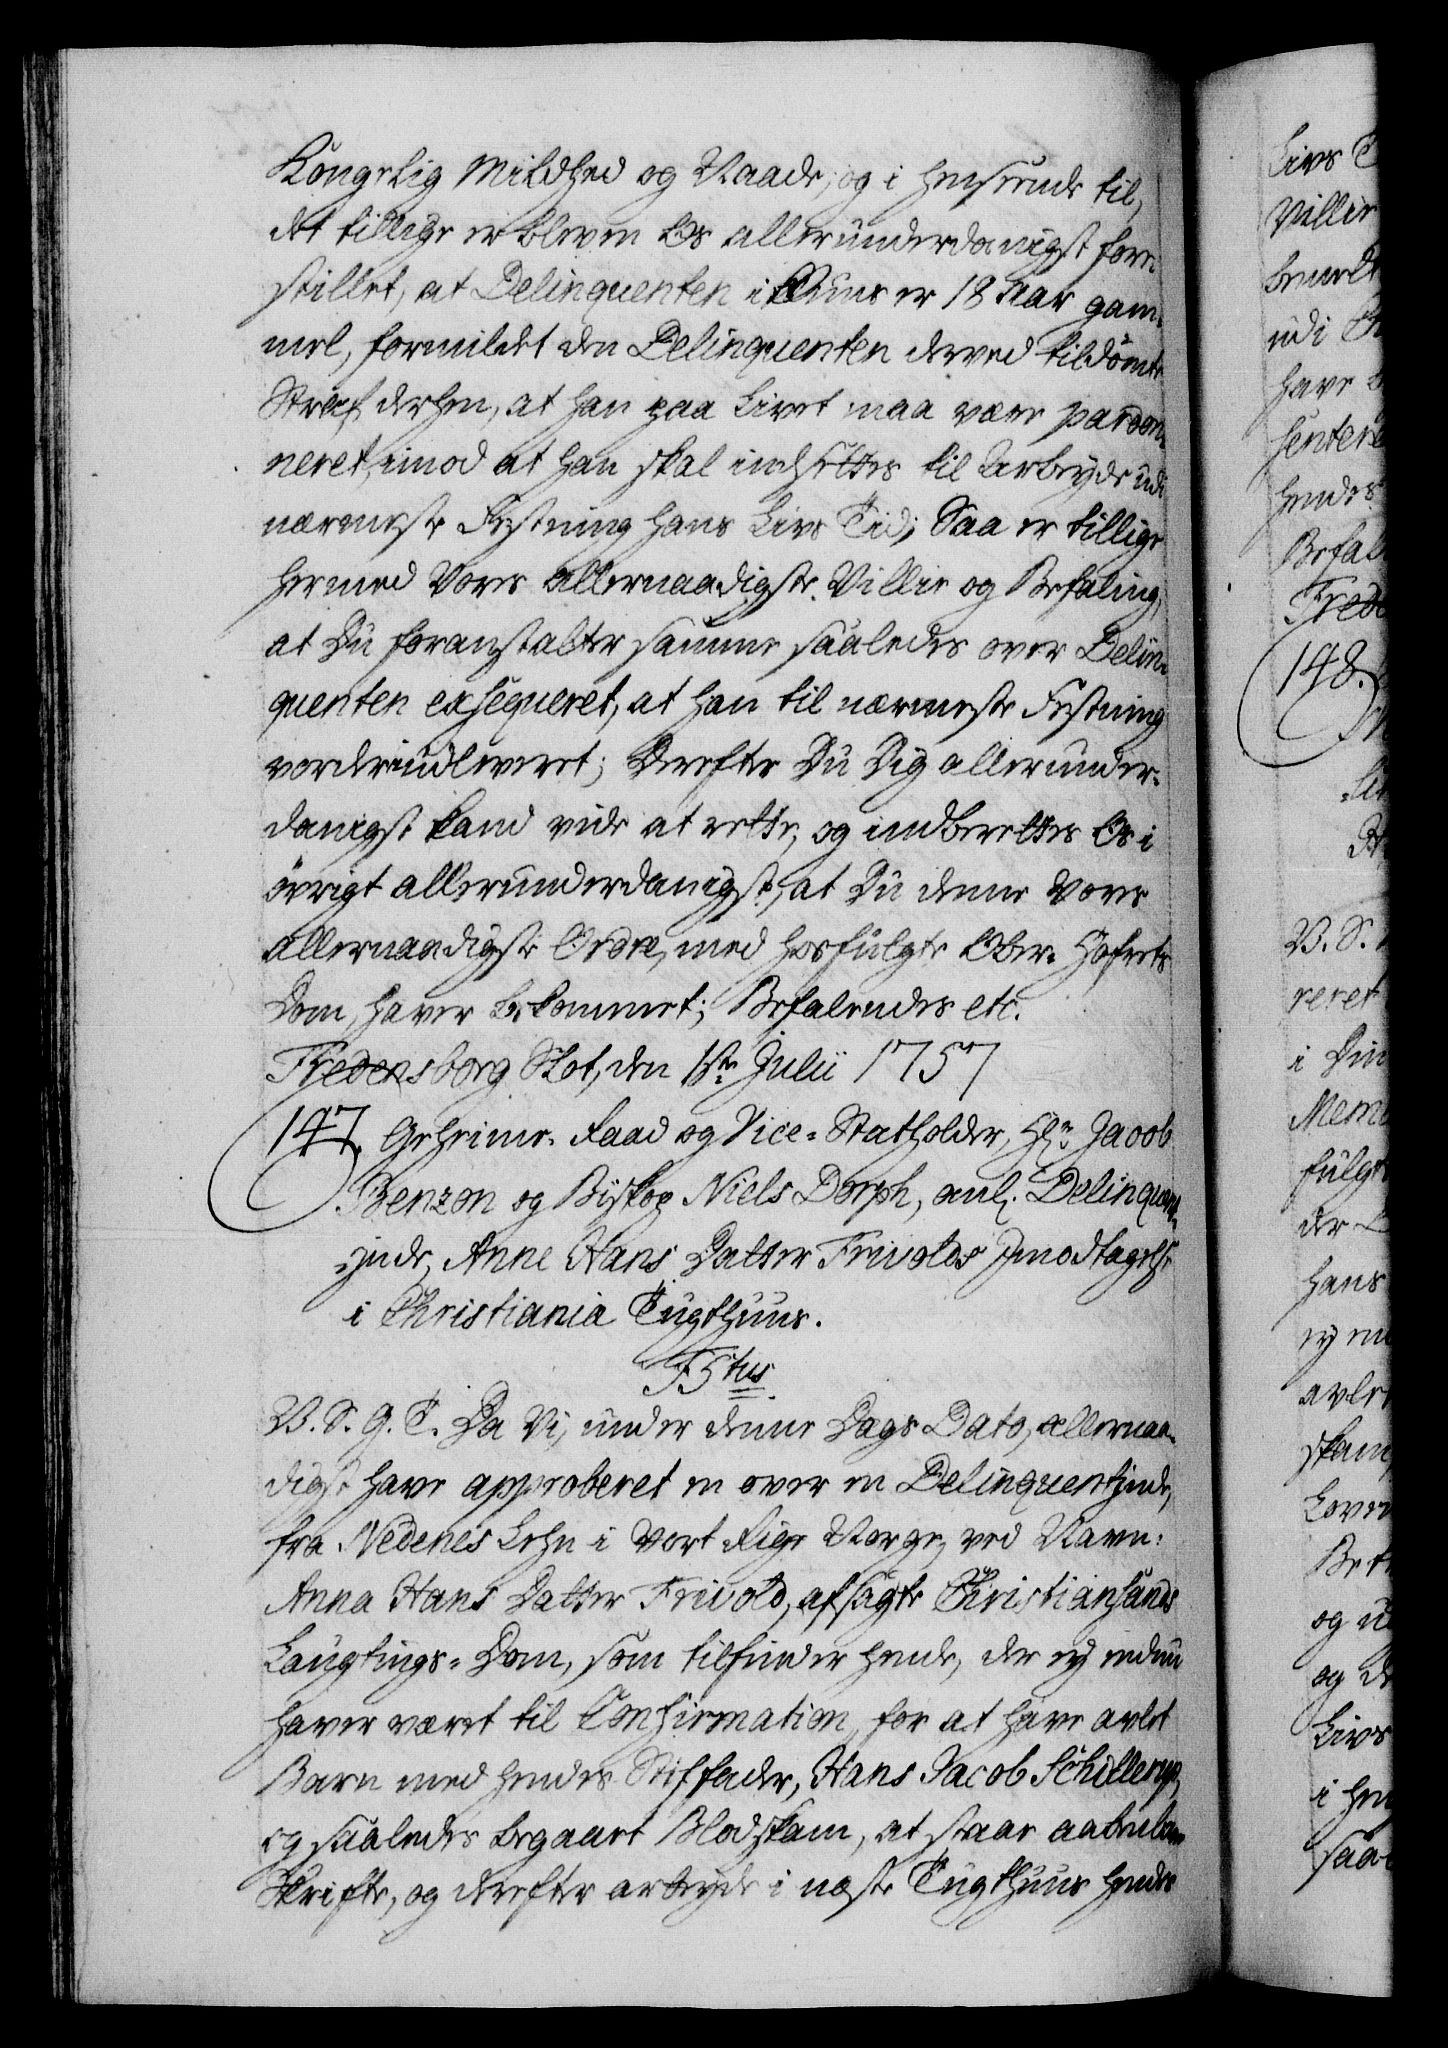 Kongelig Mildhed og Naade, og i henseende til,
det tillige er bleven Os allerunderdanigst fore-
stillet, at Delinquenten ikkuns er 18 Aar gam-
mel, formildet den Delinquenten derved tildømte
Straf derhen, at han paa Livet maa være pardon-
neret, imod at han skal indsettes til Arbeyde udi
nærmeste Festning hans Livs Tid; Saa er tillige
hermed Vores allernaadigste Villie og Befaling,
at Du foranstalter samme saaledes over Delin-
quenten exseqveret, at han til nærmeste Festning
vorder indleveret; Derefter Du Dig allerunder-
danigst kand vide at rette, og indberettes Os i
øvrigt allerunderdanigst, at Du denne Vores
allernaadigste Ordre, med hosfulgte Ober-Hofrets
Dom, haver bekommet; Befalendes etc.
Fredensborg Slot, den 1ste Julii 1757
147. Geheime-Raad og Vice-Statholder, Hr. Jacob
Benzon og Byskop Niels Dorph, anl. Delinquent-
inde, Anne Hans Datter Frivolds Jmodtagelse
i Christiania Tugthuus.
F5tus
V. S. G. T. Da Vi, under denne Dags Dato, allernaa-
digst have approberet en over en Delinquentinde,
fra Nedenes Lehn i Vort Rige Norge, ved Navn:
Anna Hans Datter Frivold, afsagte Christiansands
Laugtings-Dom, som tilfinder hende, der ey endnu
haver været til Confirmation, for at have avlet
Barn med hendes Stiffader, Hans Jacob Schillerup,
og saaledes begaaet Blodskam, at staae aabenbare
Skrifte, og derefter arbeyde i neste Tugthuus hendes
Livs T
Villie
bemelt
udi
have
senter
hendes
Befal
Frede
148.
V. S.
reret
i
Mem
fulgt
der
hans
ey
avlet
skam
Loven
Bet
og
og de
Livs
i hen
saa